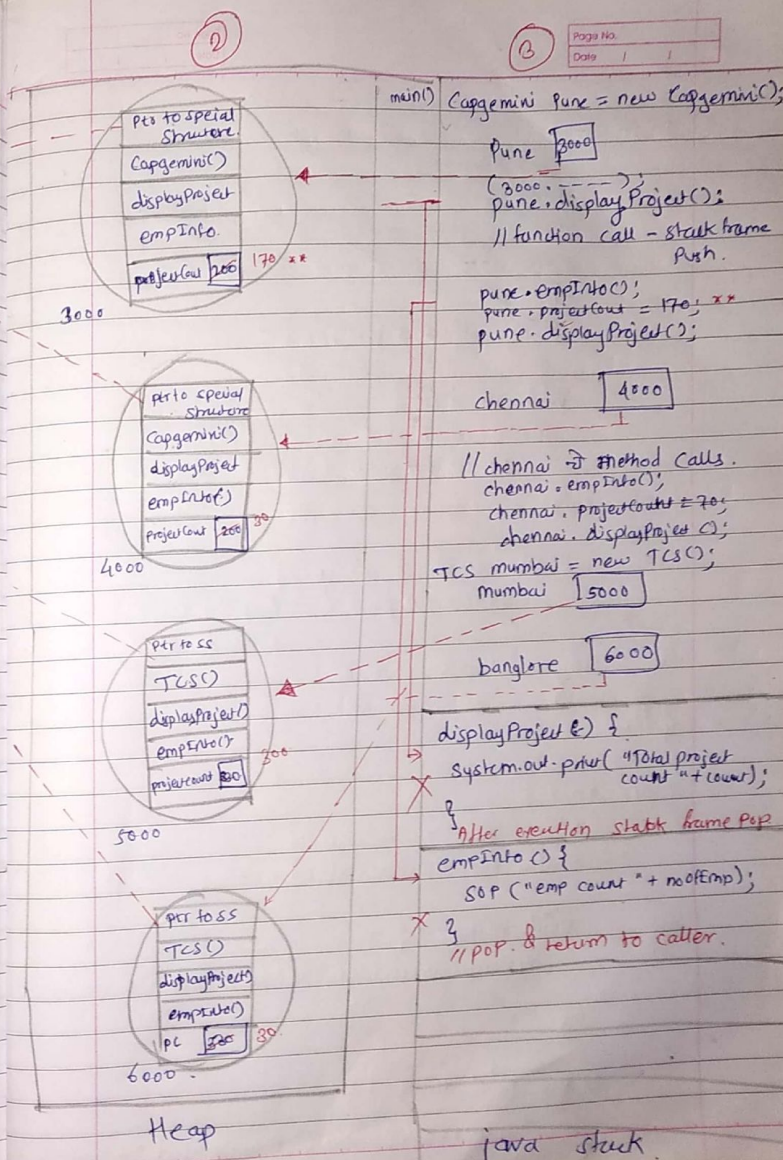 2
3
Page No.
Date / /
Ptr to special
Structure.
Capgemini()
displayProject
empInfo.
projectCout 200 170 **
3000
ptr to special
Structure
Capgemini()
displayProject
empInfo()
projectCout 200 30
4000
Ptr to ss
TCS()
displayProject()
empInfo()
projectcount 300
5000
ptr to ss
TCS()
displayProject()
empInfo()
PC 330 30
6000
Heap
main() Capgemini Pune = new Capgemini();
Pune 3000
(3000. - - - - -);
pune.displayProject();
// function call - stack frame
Push.
pune.empInfo();
pune.projectCout = 170; **
pune.displayProject();
chennai 4000
// chennai चे method calls.
chennai.empInfo();
chennai.projectCount = 70;
chennai.displayProject();
TCS mumbai = new TCS();
mumbai 5000
banglore 6000
displayProject() {
System.out.print("Total project
count "+count);
}
After execution stack frame pop
empInfo() {
SOP ("emp count "+ noOfEmp);
}
// pop & return to caller.
java stack